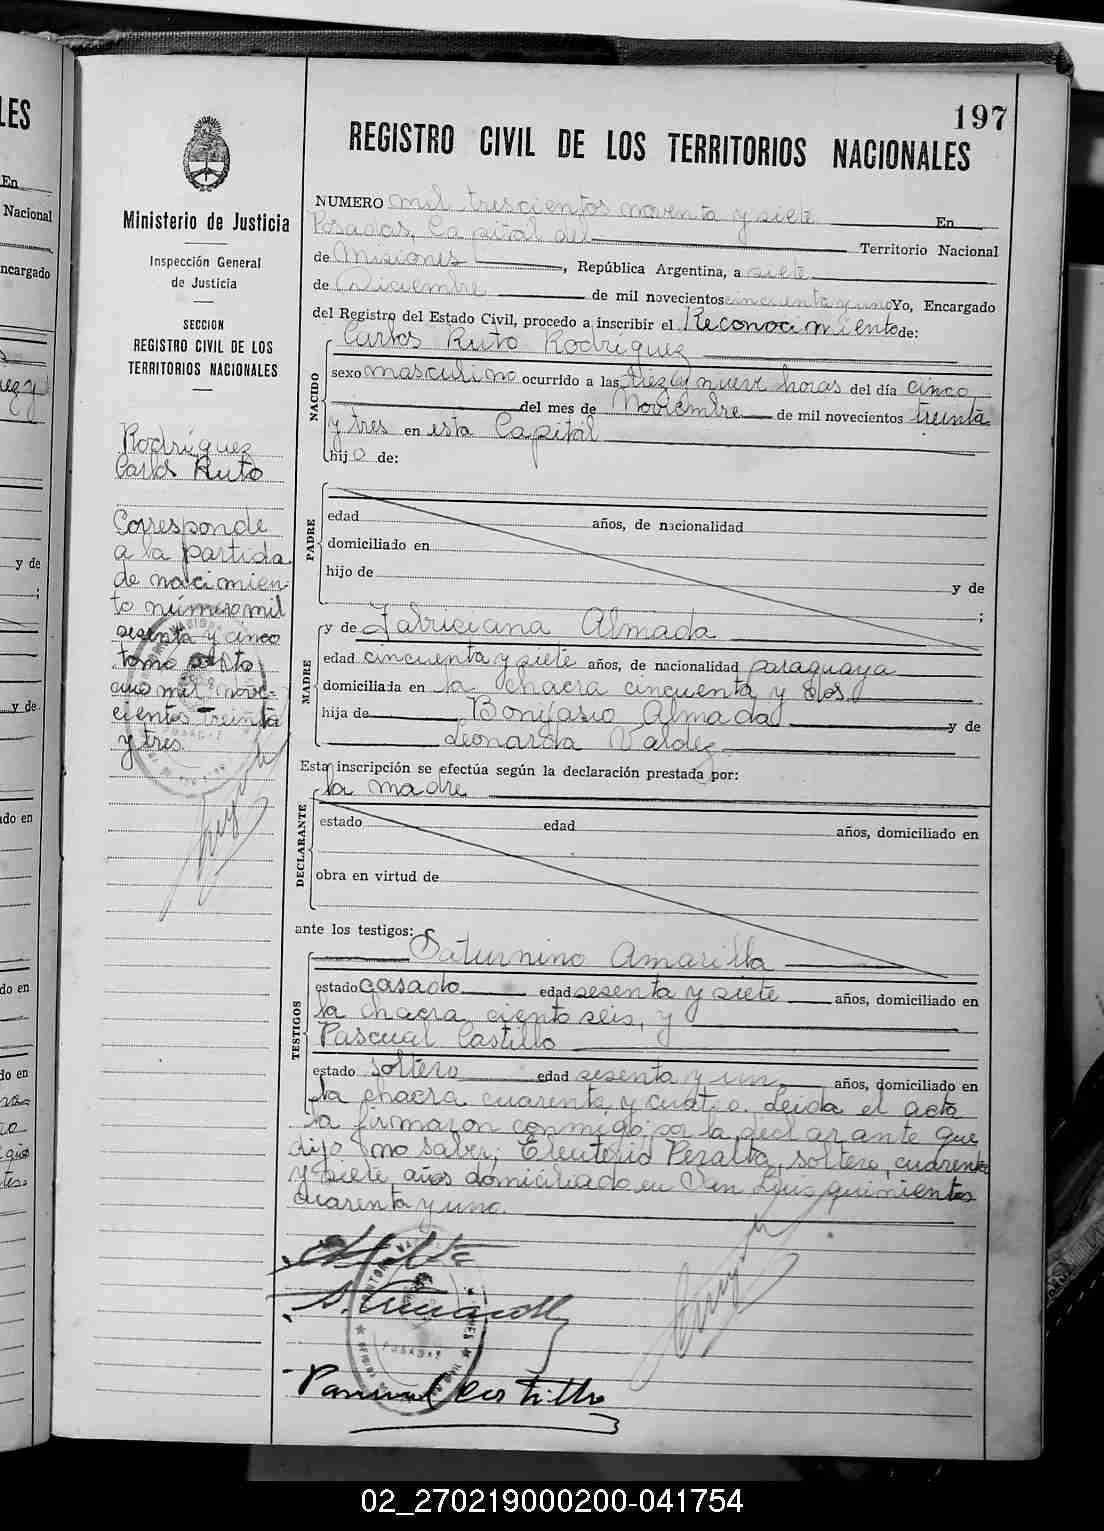 197
REGISTRO CIVIL DE LOS TERRITORIOS NACIONALES
Ministerio de Justicia
Inspección General
de Justicia
SECCION
REGISTRO CIVIL DE LOS
TERRITORIOS NACIONALES
Rodríguez
Carlos Ruto
Corresponde
a la partida
de nacimien-
to número mil
sesenta y cinco
tomo
año mil nove-
cientos treinta
y tres.
NUMERO mil trescientos noventa y siete En
Posadas, Capital del Territorio Nacional
de Misiones, República Argentina, a siete
de Diciembre de mil novecientos cincuenta y uno Yo, Encargado
del Registro del Estado Civil, procedo a inscribir el Reconocimiento de:
Carlos Ruto Rodriguez
NACIDO
sexo masculino ocurrido a las diez y nueve horas del día cinco
del mes de Noviembre de mil novecientos treinta
y tres en esta Capital
hijo de:
PADRE
edad años, de nacionalidad
domiciliado en
hijo de y de
;
MADRE
y de Fabriciana Almada
edad cincuenta y siete años, de nacionalidad paraguaya
domiciliada en la chacra cincuenta y dos
hija de Bonifasio Almada y de
Leonarda Valdez
Esta inscripción se efectúa según la declaración prestada por:
la madre
DECLARANTE
estado edad años, domiciliado en
obra en virtud de
ante los testigos:
Saturnino Amarilla
TESTIGOS
estado casado edad sesenta y siete años, domiciliado en
la chacra ciento seis, y
Pascual Castillo
estado soltero edad sesenta y un años, domiciliado en
la chacra cuarenta y cuatro. Leida el acta
la firmaron conmigo por la declarante que
dijo no saber; Eleuterio Peralta, soltero, cuarenta
y siete, años domiciliado en San Luis quinientos
cuarenta y uno.
Pascual Castillo
02_270219000200-041754